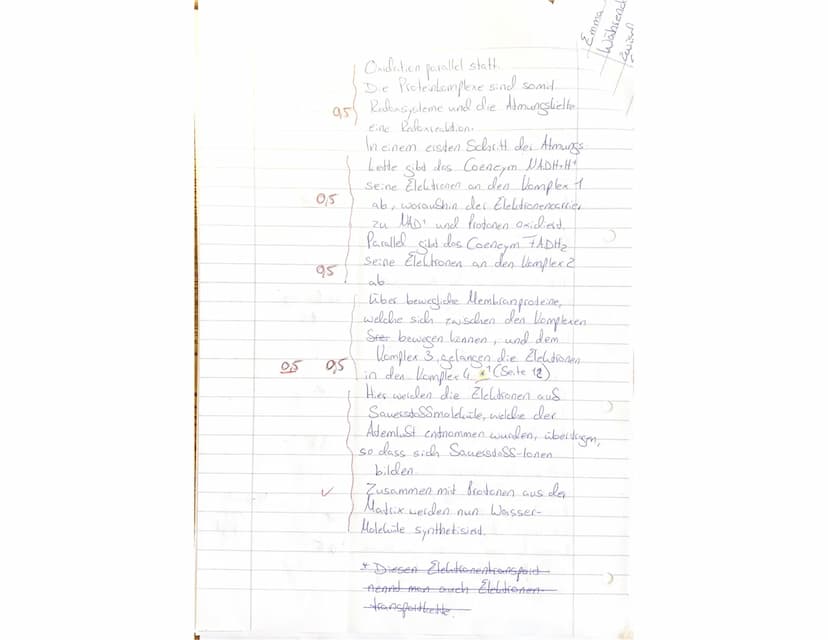 Emma
Während
Oxidation parallel statt.
Die Proteinkomplexe sind somit
Redoxsysteme und die Atmungskette
0,5
eine Redoxreaktion.
In einem ersten Schritt der Atmungs
kette gibt das Coenzym NADH+H⁺
seine Elektronen an den Komplex 1
0,5 ab, woraufhin der Elektronencarrier
zu NAD⁺ und Protonen oxidiert.
Parallel gibt das Coenzym FADH₂
0,5 seine Elektronen an den Komplex 2
ab
Über bewegliche Membranproteine,
welche sich zwischen den Komplexen
bewegen können, und dem
Komplex 3, gelangen die Elektronen
0,5 0,5 in den Komplex 4. *¹ (Seite 12)
Hier werden die Elektronen auf
Sauerstoffmoleküle, welche der
Atemluft entnommen wurden, übertragen,
so dass sich Sauerstoff-Ionen
bilden.
✓ Zusammen mit Protonen aus der
Matrix werden nun Wasser-
Moleküle synthetisiert.
* Diesen Elektronentransport
nennt man auch Elektronen-
transportkette.